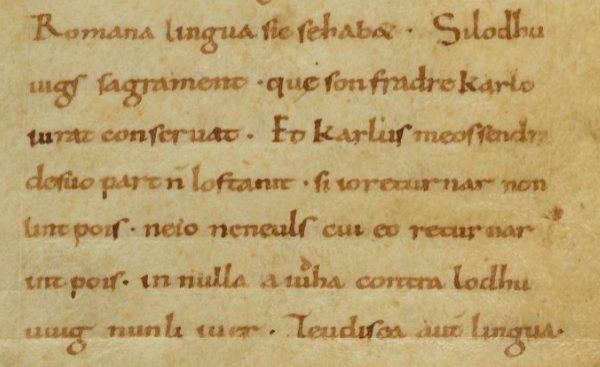 Romana lingua sic se habet · Silodhu
uigs sagrament · que son fradre Karlo
iurat conseruat · Et Karlus meossendra
desuo part n̄ lostanit · si ioreturnar non
lint pois · neio neneuls cui eo returnar
int pois · in nulla aiudha contra lodhu
uuig nunli iuer · Teudisca aut̄ lingua ·